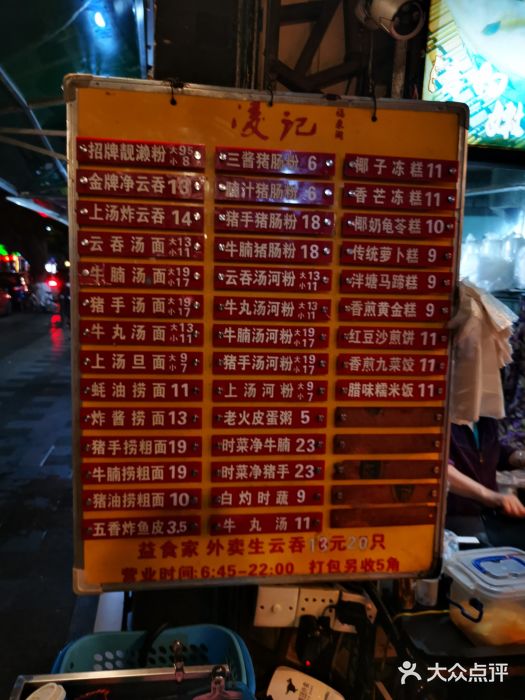 凌记
福泉阁
招牌靓濑粉 大9.5 小8
金牌净云吞 13
上汤炸云吞 14
云吞汤面 大13 小11
牛腩汤面 大19 小17
猪手汤面 大19 小17
牛丸汤面 大13 小11
上汤旦面 大9 小7
蚝油捞面 11
炸酱捞面 13
猪手捞粗面 19
牛腩捞粗面 19
猪油捞面 10
五香炸鱼皮 3.5
三酱猪肠粉 6
腩汁猪肠粉 6
猪手猪肠粉 18
牛腩猪肠粉 18
云吞汤河粉 大13 小11
牛丸汤河粉 大13 小11
牛腩汤河粉 大19 小17
猪手汤河粉 大19 小17
上汤河粉 大9 小7
老火皮蛋粥 5
时菜净牛腩 23
时菜净猪手 23
白灼时蔬 9
牛丸汤 11
椰子冻糕 11
香芒冻糕 11
椰奶龟苓糕 10
传统萝卜糕 9
泮塘马蹄糕 9
香煎黄金糕 9
红豆沙煎饼 11
香煎九菜饺 11
腊味糯米饭 11
益食家 外卖生云吞13元20只
营业时间:6:45-22:00 打包另收5角
大众点评